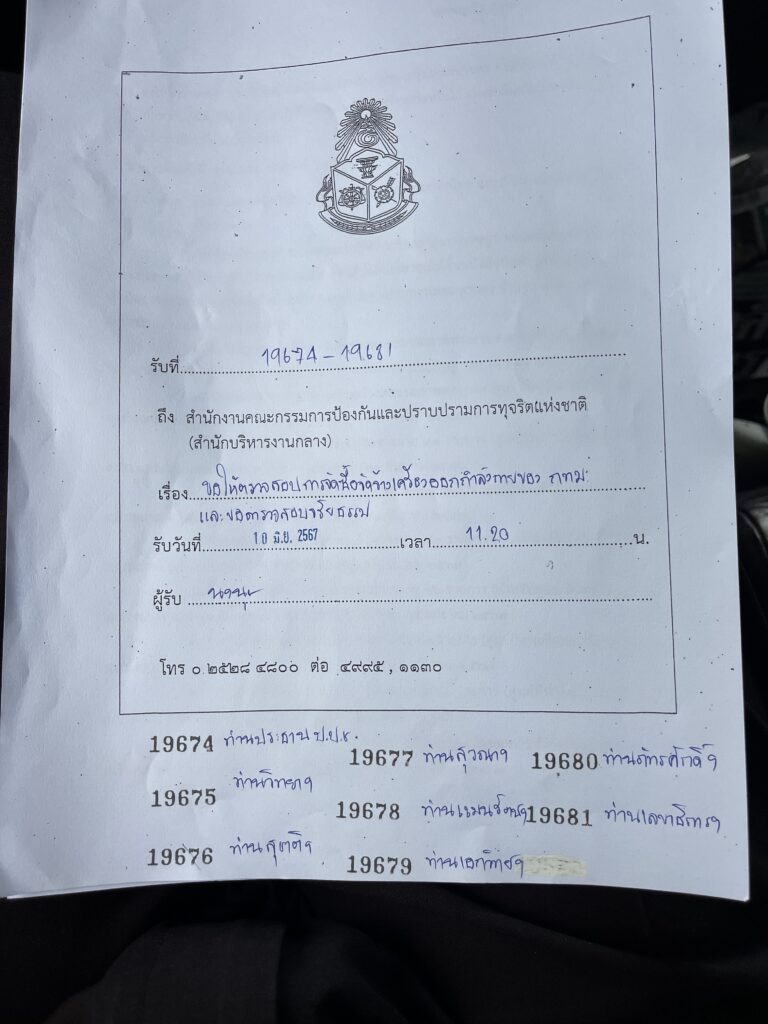 รับที่ 19674 - 19681
ถึง สำนักงานคณะกรรมการป้องกันและปราบปรามการทุจริตแห่งชาติ
(สำนักบริหารงานกลาง)
เรื่อง ขอให้ตรวจสอบการจัดซื้อจัดจ้างเครื่องออกกำลังกายของ กทม.
และขอตรวจสอบจริยธรรม
รับวันที่ 10 มิ.ย. 2567 เวลา 11.20 น.
ผู้รับ
โทร ๐ ๒๕๒๘ ๔๘๐๐ ต่อ ๔๙๙๕ , ๑๑๓๐
19674 ท่านประธาน ป.ป.ช.
19675 ท่านวิทยาฯ
19676 ท่านสุชาติฯ
19677 ท่านสุวณาฯ
19678 ท่านแมนรัตนฯ
19679 ท่านเอกวิทย์ฯ
19680 ท่านภัทรศักดิ์ฯ
19681 ท่านเลขาธิการฯ